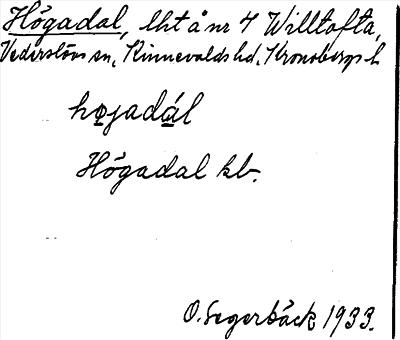 Högadal, lht å nr 4 Willtofta,
Vederslövs sn, Kinnevalds hd, Kronobergs l.
họjadạ́l
Högadal kb.
O. Segerbäck 1933.